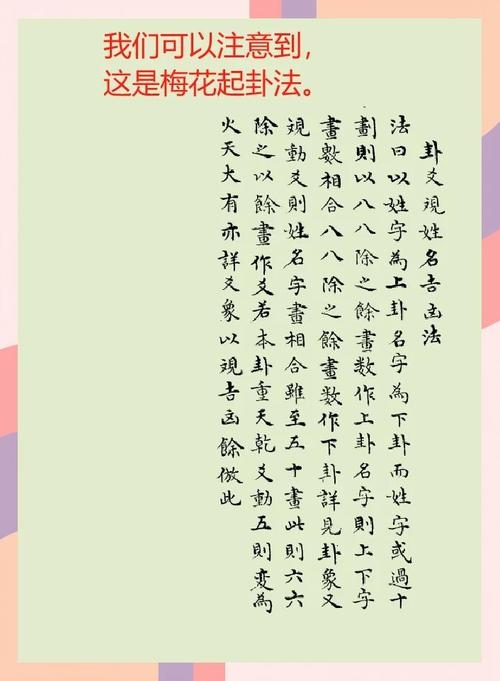 我们可以注意到，
这是梅花起卦法。
卦爻覌姓名吉凶法
法曰以姓字為上卦名字為下卦而姓字或過十
劃則以八八除之餘畫数作上卦名字則上下字
畫數相合八八除之餘畫数作下卦詳見卦象又
覌動爻則姓名字畫相合雖至五十畫此則六六
除之以餘畫作爻若本卦重天乾爻動五則変為
火天大有亦詳爻象以覌吉凶餘倣此